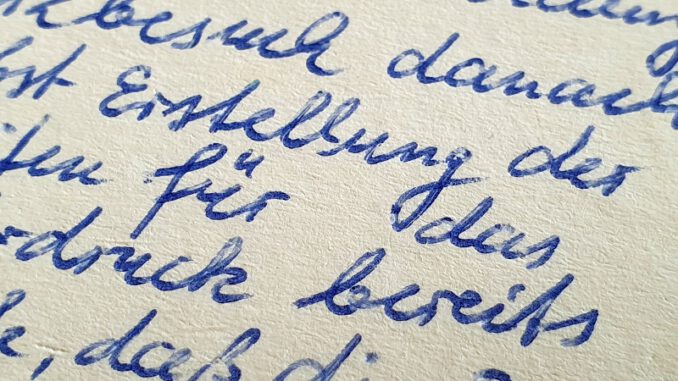 besuch danach
Erstellung der
für das
druck bereits
, daß di